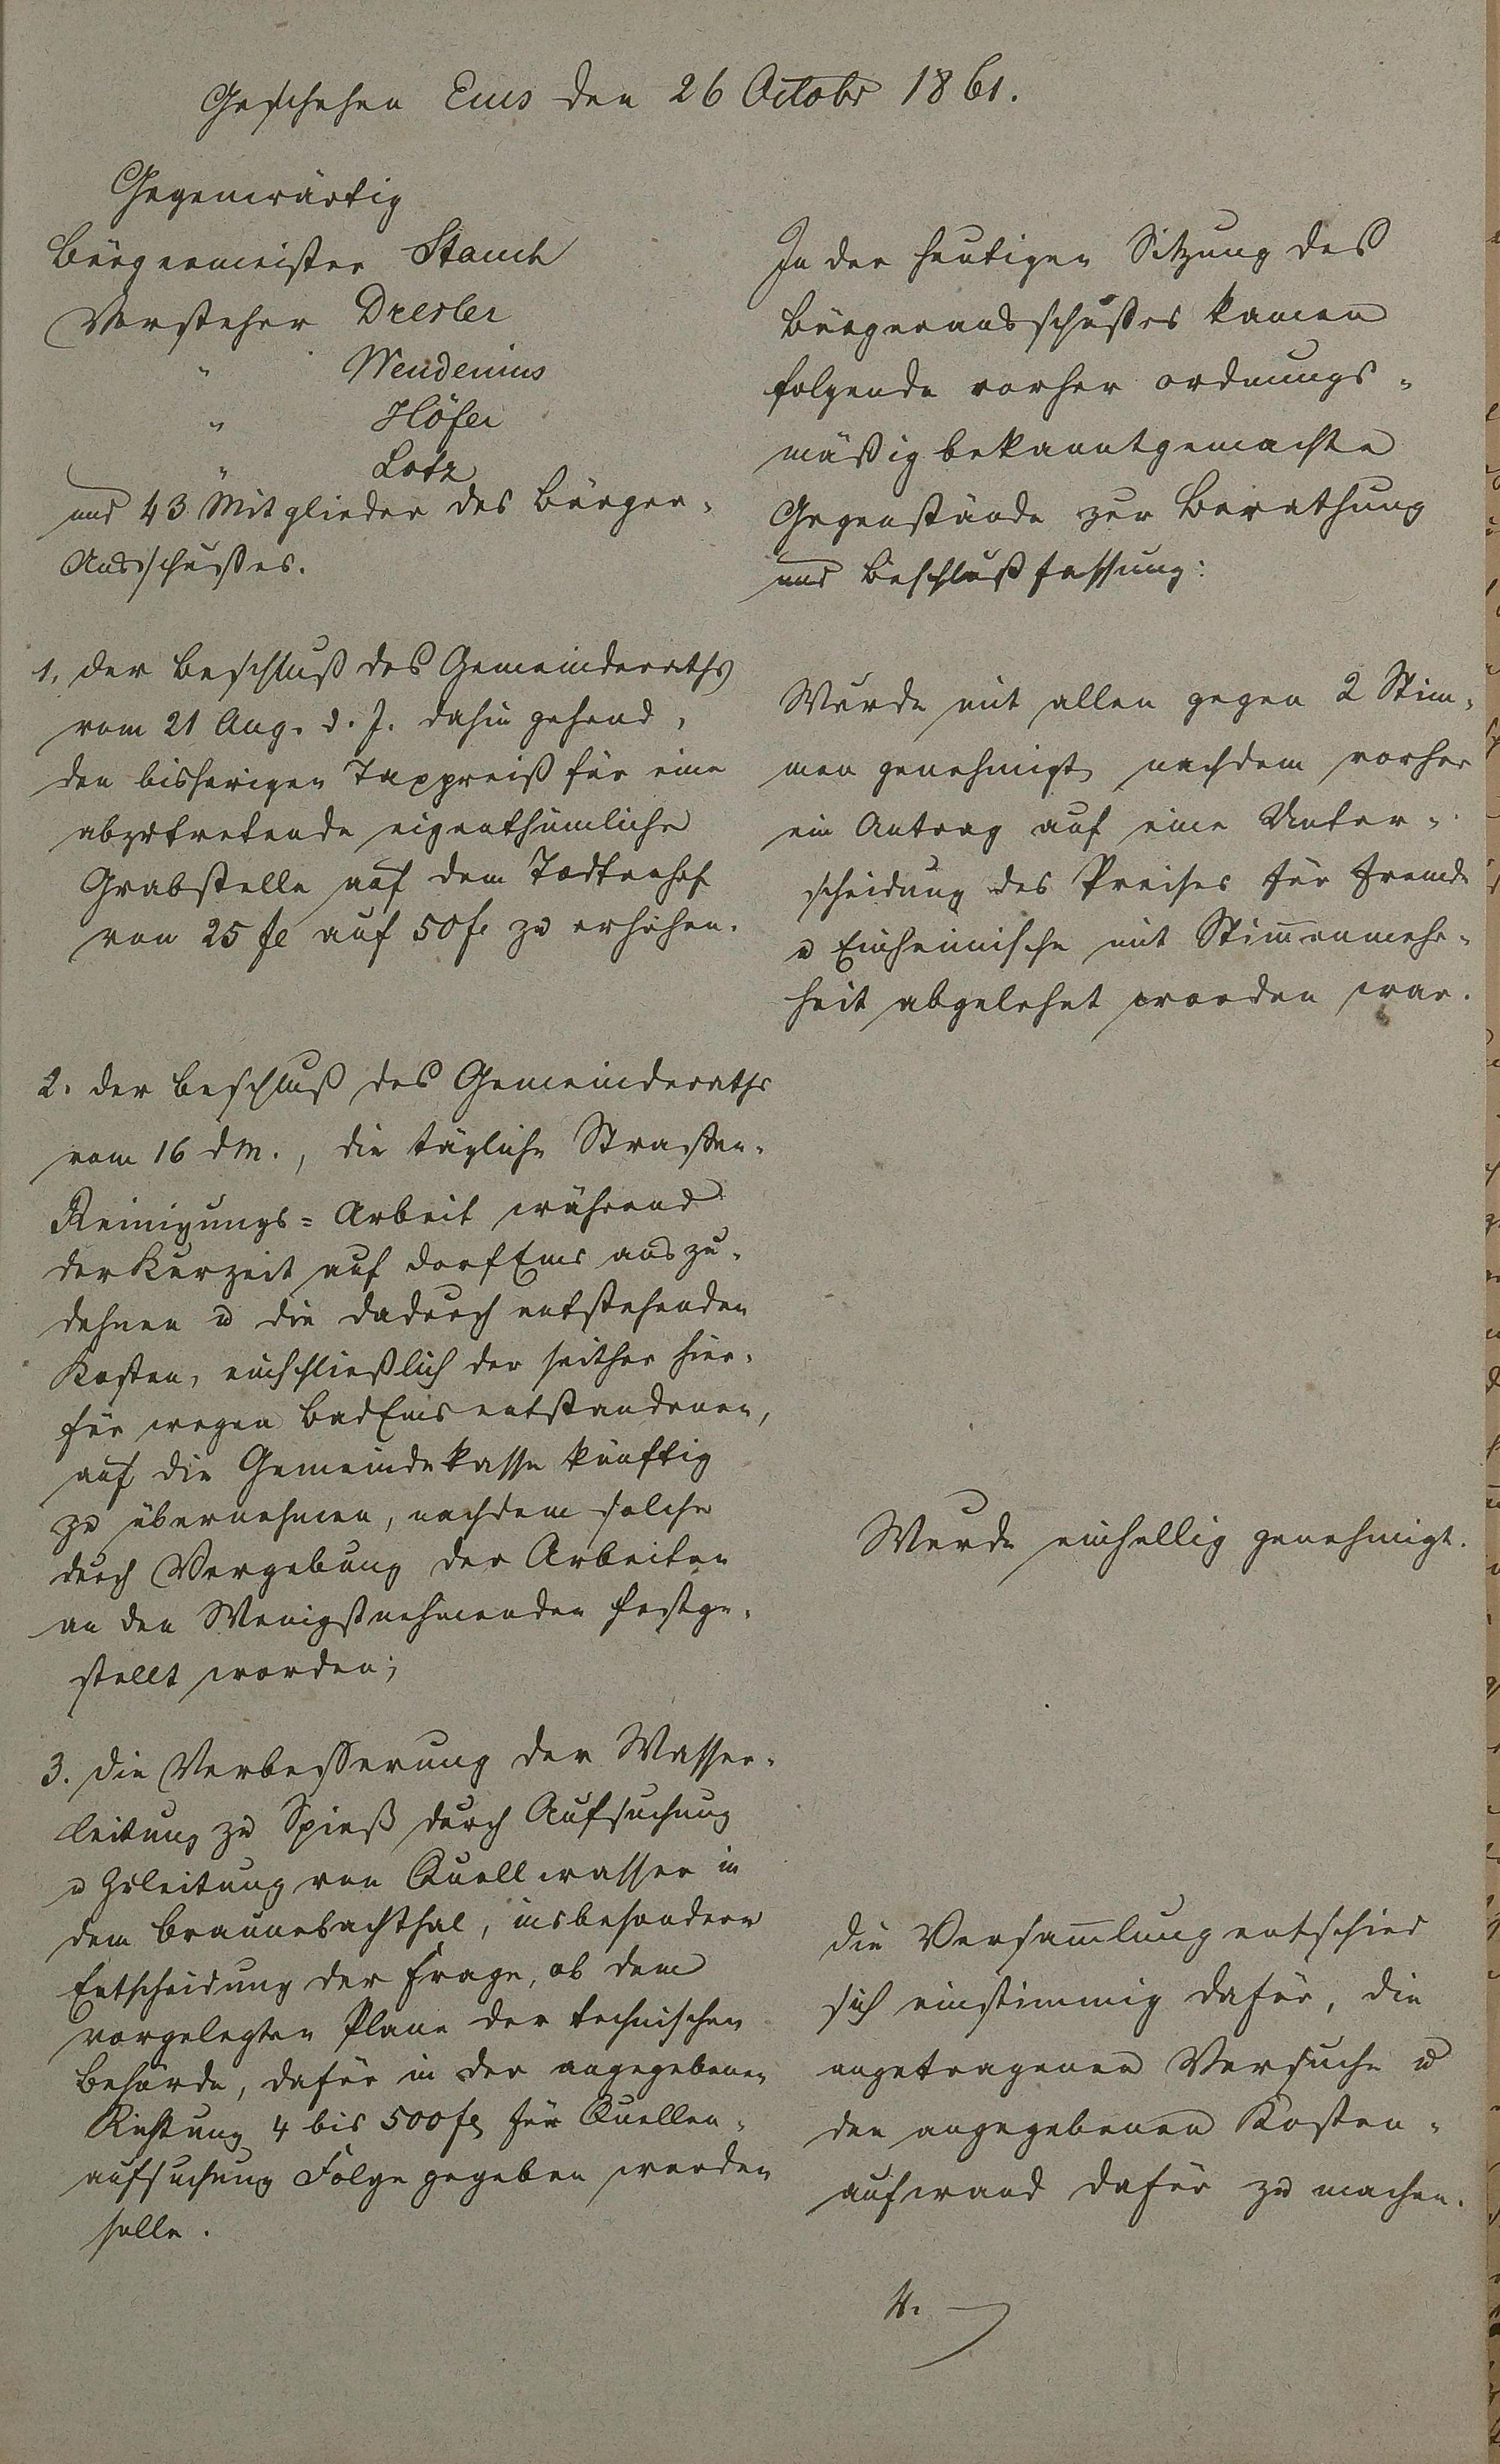 Geschehen Ems den 26 Octobr 1861.
Gegenwärtig
Bürgermeister Stauch
Vorsteher Dresler
" Wendenius
" Höfer
" Lotz
und 43 Mitglieder des Bürger-
Ausschußes.
In der heutigen Sitzung des
Bürgerausschußes kamen
folgende vorher ordnungs-
mäßig bekanntgemachte
Gegenstände zur Berathung
und Beschlußfassung:
1, der Beschluß des Gemeinderaths
vom 21 Aug. d. J. dahin gehend,
den bisherigen Taxpreiß für eine
abzutretende eigenthümliche
Grabstelle auf dem Todtenhof
von 25 fl auf 50 fl zu erhöhen.
Wurde mit allen gegen 2 Stim-
men genehmigt, nachdem vorher
ein Antrag auf eine Unter-
scheidung des Preises für Fremde
u Einheimische mit Stimmenmehr-
heit abgelehnt worden war.
2. der Beschluß des Gemeinderaths
vom 16 d M., die tägliche Straßen-
Reinigungs-Arbeit während
der Kurzeit auf Dorf Ems auszu-
dehnen u die dadurch entstehenden
Kosten, einschließlich der seither hier-
für wegen Bad Ems entstandenen,
auf die Gemeindekasse künftig
zu übernehmen, nachdem solche
durch Vergebung der Arbeiten
an den Wenigstnehmenden festge-
stellt worden;
Wurde einhellig genehmigt.
3. die Verbesserung der Wasser-
leitung zu Spieß durch Aufsuchung
u Zuleitung von Quellwasser in
dem Braunebachthal, insbesondere
Entscheidung der Frage, ob dem
vorgelegten Plane der technischen
Behörde, dafür in der angegebenen
Richtung 4 bis 500 fl für Quellen-
aufsuchung Folge gegeben werden
solle.
die Versammlung entschied
sich einstimmig dafür, die
angetragenen Versuche u
den angegebenen Kosten-
aufwand dafür zu machen.
4.